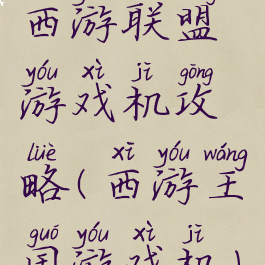 西游联盟
yóu xì jī gōng
游戏机攻
lüè xī yóu wáng
略(西游王
guó yóu xì jī
国游戏机)